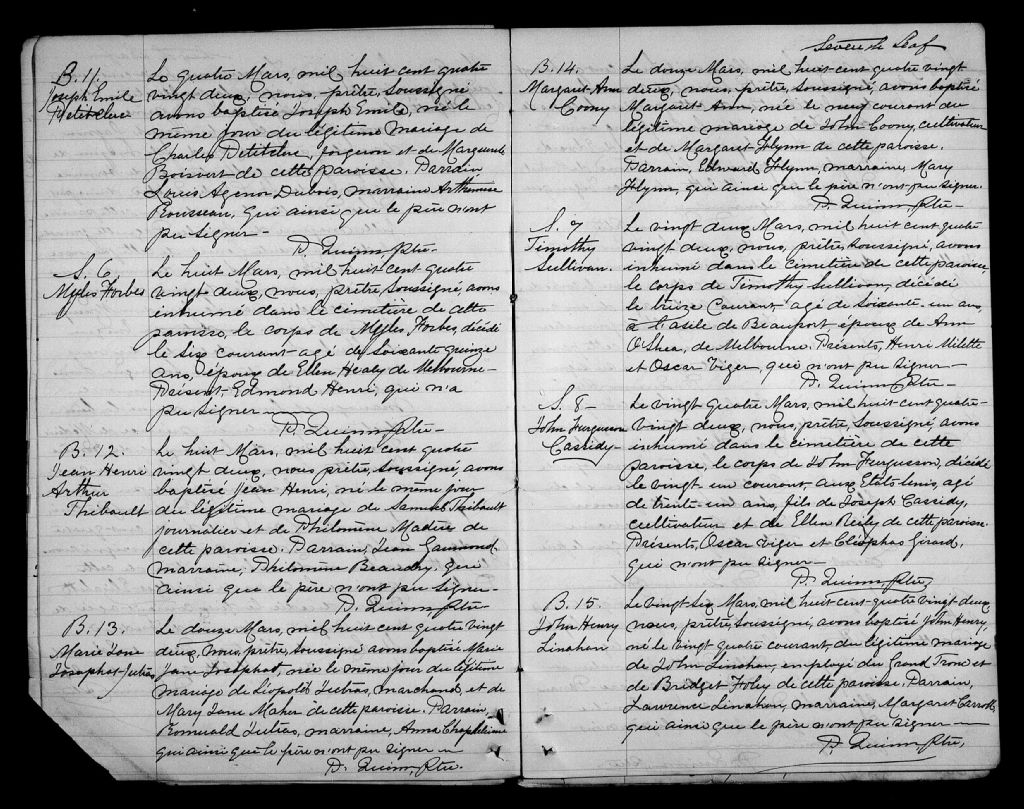 B. 11.
Joseph Emile
Petitclerc
Le quatre Mars, mil huit cent quatre
vingt deux, nous, prêtre, soussigné
avons baptisé Joseph Emile, né le
même jour du légitime mariage de
Charles Petitclerc, forgeron et de Marguerite
Boisvert de cette paroisse. Parrain
Louis Agenor Dubois, marraine
Rousseau, qui ainsi que le père n'ont
pu signer -
P. Quinn Ptre -
S. 6
Myles Forbes
Le huit Mars, mil huit cent quatre
vingt deux, nous, prêtre, soussigné, avons
inhumé dans le cimetière de cette
paroisse, le corps de Myles Forbes, décédé
le six courant agé de soixante quinze
ans, époux de Ellen Healy de Melbourne -
Présent - Edmond Henri, qui n'a
pu signer -
P. Quinn Ptre -
B. 12.
Jean Henri
Arthur
Thibault
Le huit Mars, mil huit cent quatre
vingt deux, nous prêtre, soussigné, avons
baptisé Jean Henri, né le même jour
du légitime mariage de Samuel Thibault
journalier et de Philomène Madère de
cette paroisse. Parrain, Jean
marraine, Philomène Beaudry, qui
ainsi que le père n'ont pu signer -
P. Quinn Ptre -
B. 13.
Marie Jane
Josaphat Jutras
Le douze Mars, mil huit cent quatre vingt
deux, nous, prêtre, soussigné avons baptisé Marie
Jane Josephat, née le même jour du légitime
mariage de Léopold Jutras, marchand, et de
Mary Jane Maher de cette paroisse. Parrain
Romuald Jutras, marraine, Anna
qui ainsi que le père n'ont pu signer -
P. Quinn, Ptre.
Seventh Leaf
B. 14.
Margaret Ann
Coony
Le douze Mars, mil huit cent quatre vingt
deux, nous, prêtre, soussigné, avons baptisé
Margaret Ann, née le neuf courant du
légitime mariage de John Coony, cultivateur
et de Margaret Flynn de cette paroisse.
Parrain, Edward Flynn, marraine, Mary
Flynn, qui ainsi que le père n'ont pu signer.
P. Quinn Ptre -
S. 7
Timothy
Sullivan.
Le vingt deux Mars, mil huit cent quatre
vingt deux, nous, prêtre, soussigné, avons
inhumé dans le cimetière de cette paroisse,
le corps de Timothy Sullivan, décédé
le treize courant, agé de soixante un ans,
à l'asile de Beauport époux de Ann
O'Shea, de Melbourne. Présents, Henri Milette
et Oscar Viger, qui n'ont pu signer -
P. Quinn Ptre -
S. 8 -
John Ferguson
Cassidy -
Le vingt quatre Mars, mil huit cent quatre -
vingt deux, nous, prêtre, soussigné, avons
inhumé dans le cimetière de cette
paroisse, le corps de John Fergusson, décédé
le vingt un courant, aux Etats Unis, agé
de trente un ans, fils de Joseph Cassidy,
cultivateur et de Ellen Reiley de cette paroisse.
Présents, Oscar Viger et Cléophas Girard,
qui n'ont pu signer -
P. Quinn Ptre,
B. 15.
John Henry
Linahan
Le vingt six Mars, mil huit cent quatre vingt deux
nous, prêtre, soussigné, avons baptisé John Henry,
né le vingt quatre courant, du légitime mariage
de John Linahan, employé du Grand Tronc et
de Bridget Foley de cette paroisse. Parrain,
Lawrence Linahan, marraine, Margaret Carroll,
qui ainsi que le père n'ont pu signer -
P. Quinn, Ptre,